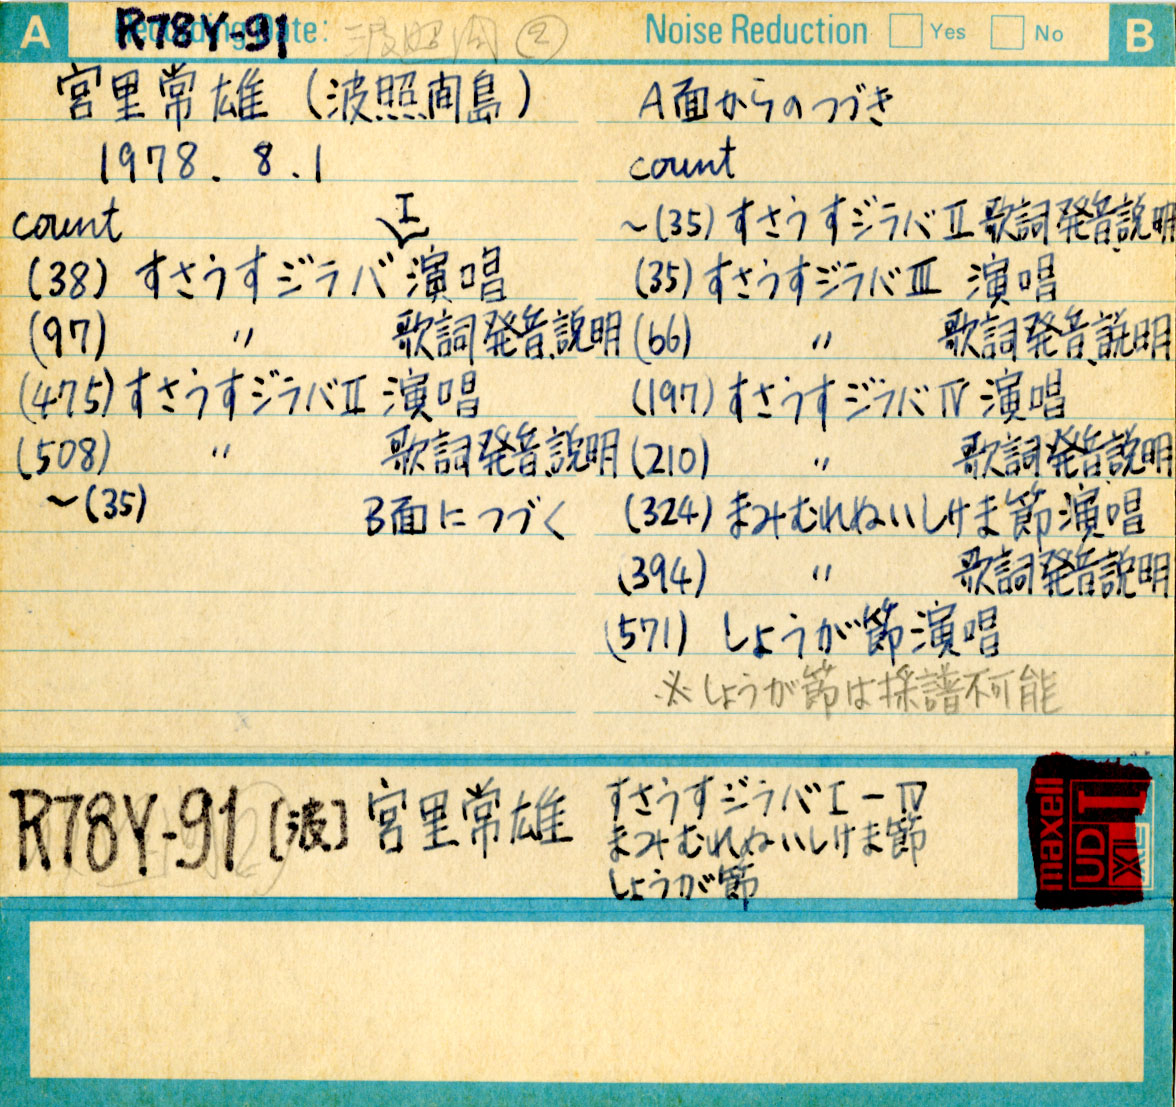 A
R78Y-91
Recording Date:
波照間 ②
宮里常雄 (波照間島)
1978. 8. 1
count
I
(38) すさうすジラバ 演唱
(97) 〃 歌詞発音、説明
(475) すさうすジラバⅡ 演唱
(508) 〃 歌詞発音、説明
~(35) B面につづく
Noise Reduction Yes No
B
A面からのつづき
count
~(35) すさうすジラバⅡ 歌詞発音、説明
(35) すさうすジラバⅢ 演唱
(66) 〃 歌詞発音、説明
(197) すさうすジラバⅣ 演唱
(210) 〃 歌詞発音、説明
(324) まみむれねいしけま節演唱
(394) 〃 歌詞発音説明
(571) しょうが節演唱
※しょうが節は採譜不可能
R78Y-91 [波] 宮里常雄
すさうすジラバⅠ-Ⅳ
まみむれねいしけま節
しょうが節
maxell
UD
XL
I